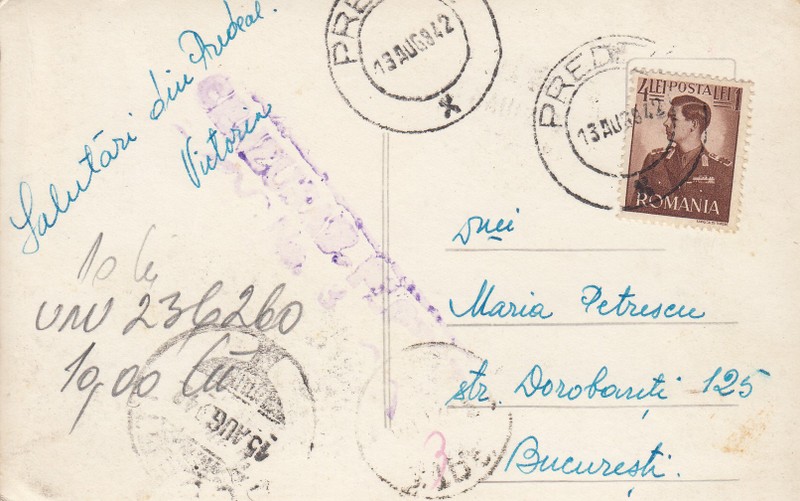 Salutări din Ardeal.
Victoria
10 lei
236260
19,00 lei
PRED
13 AUG 942
PRED
13 AUG 942
4 LEI POSTA LEI 1
ROMANIA
Dnei
Maria Petrescu
str. Dorobanți 125
București.
15 AUG
3